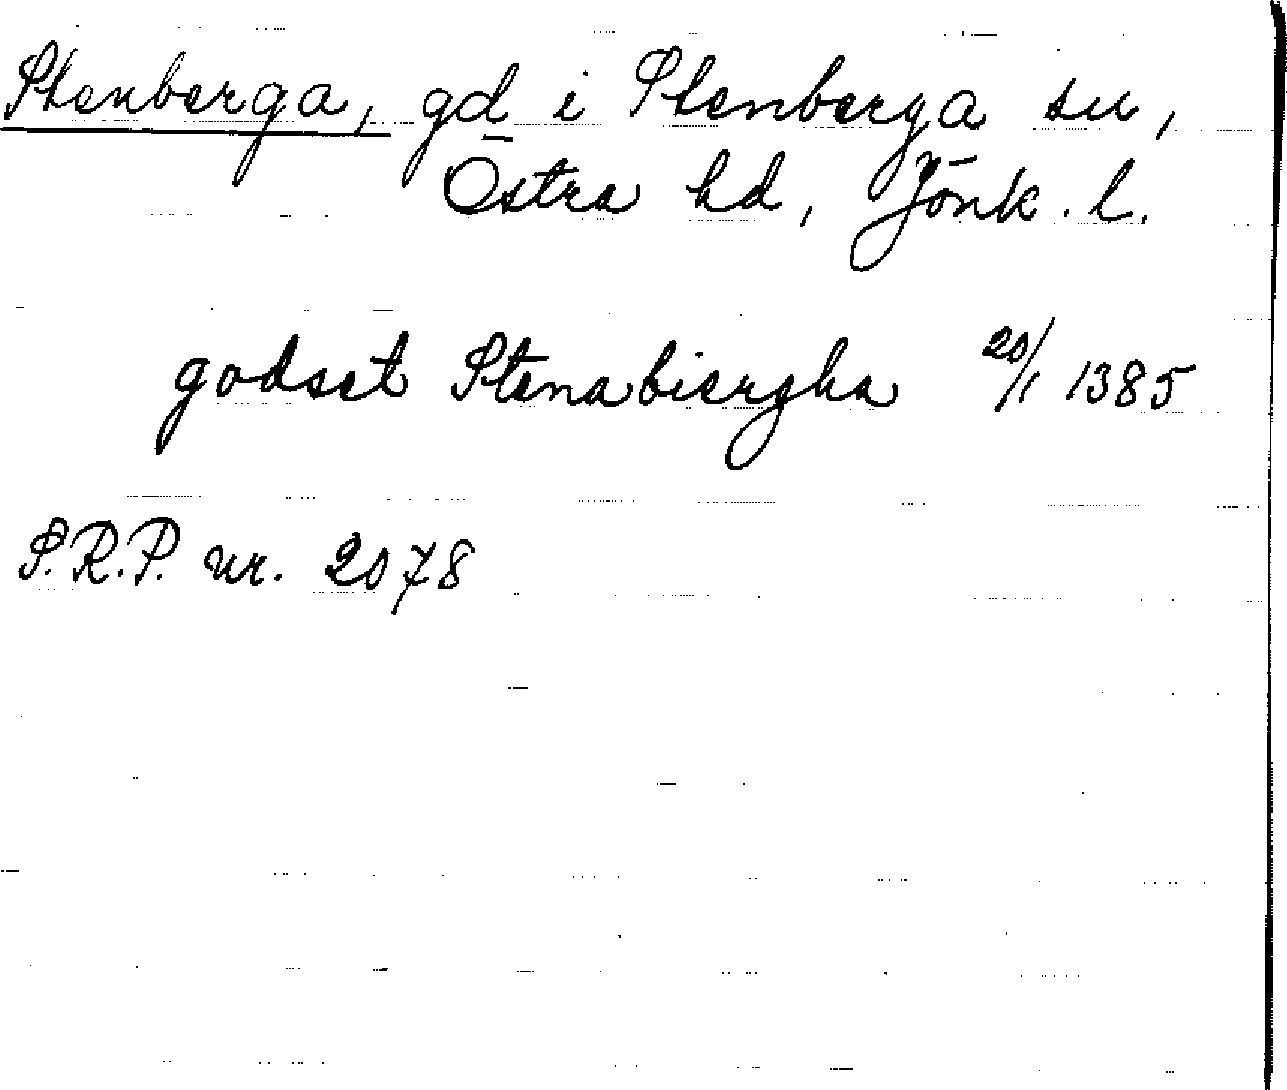 Stenberga, gd i Stenberga sn,
Östra hd, Jönk. l.
godset Stenabiergha 20/1 1385
S.R.P. nr. 2078